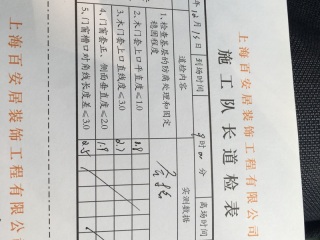 上海百安居装饰工程有限公司
施工队长道检表
年12月15日 到场时间 9时00分 离场时间
道检内容 实测数据
1、检查基层的防腐处理和固定稳固程度 合格
2、木门套上口平直度≤1.0 1.8
3、木门套上口直线度≤3.0 2.7
4、门窗套正、侧面垂直度≤2.0 1.9
5、门窗槽口对角线长度差≤3.0 2.5
上海百安居装饰工程有限公司